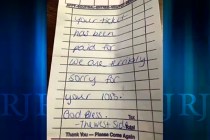 your ticket
had been
paid for
we are terribly
sorry for
your loss.
God Bless.
The West Side
Thank You — Please Come Again
RJ